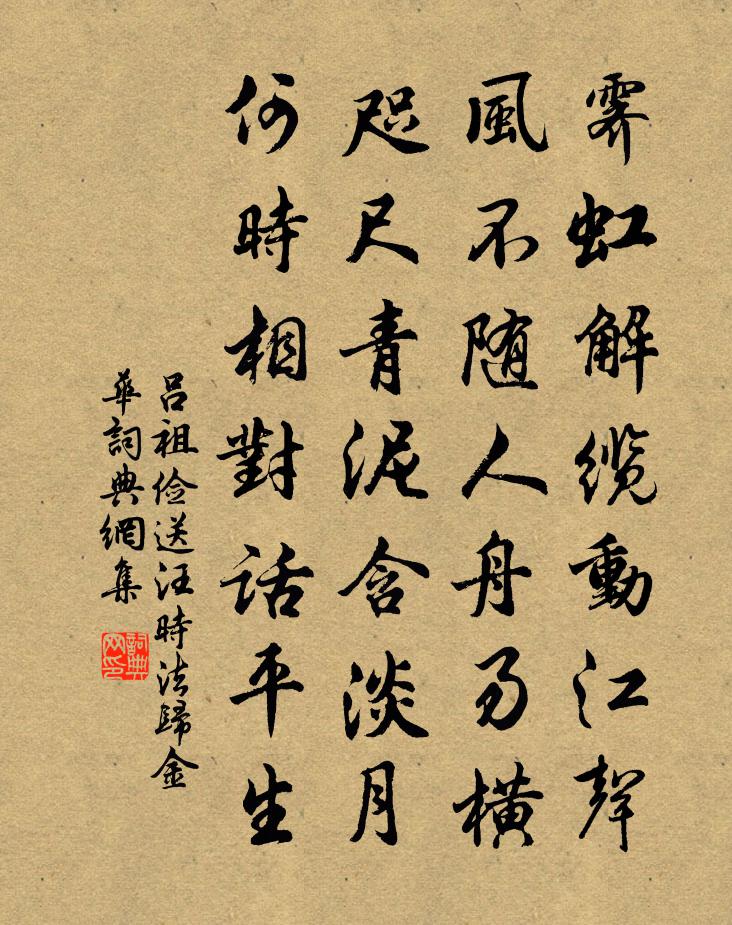 霽虹解纜動江聲
風不随人舟自橫
咫尺青泥含淡月
何時相對話平生
吕祖儉送汪時法歸金
華詞典網集
詞典网印